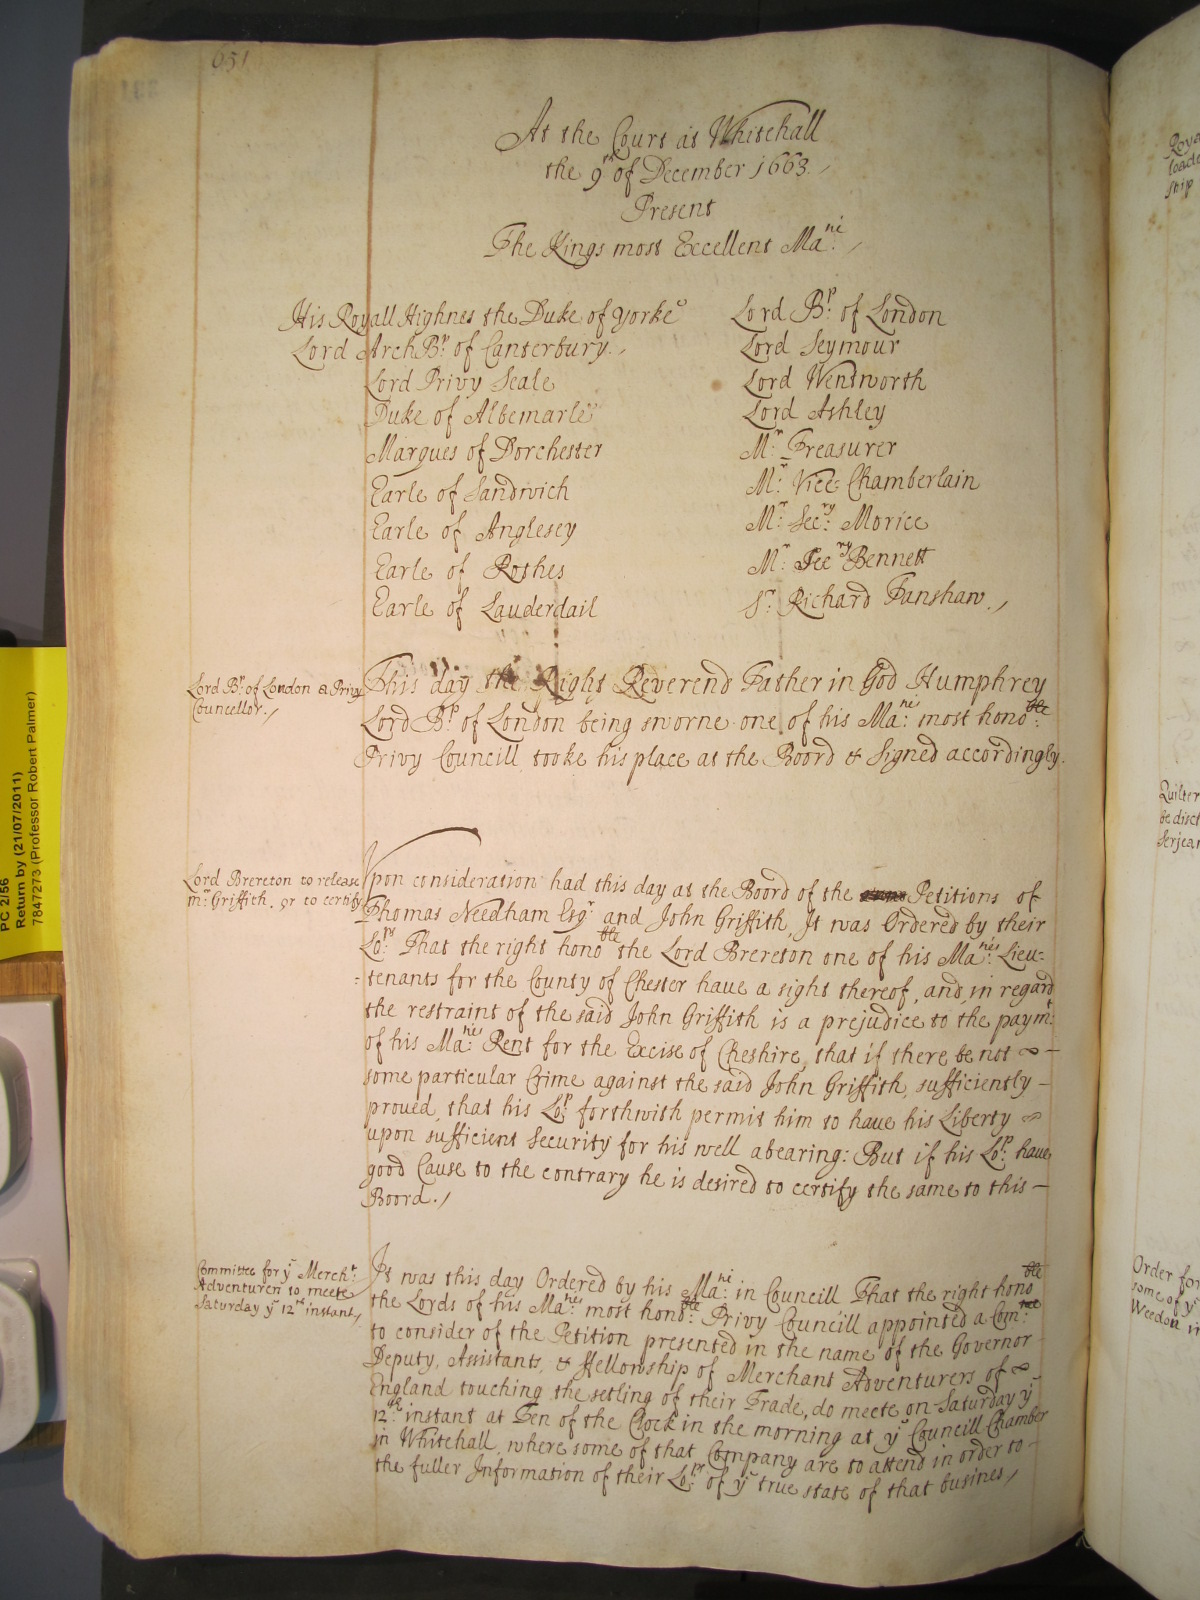 651
At the Court at Whitehall
the 9th of December 1663.
Present
The Kings most Excellent Ma:tie
His Royall Highnes the Duke of yorke
Lord ArchBp: of Canterbury.
Lord Privy Seale
Duke of Albemarle
Marques of Dorchester
Earle of Sandwich
Earle of Anglesey
Earle of Rothes
Earle of Lauderdail
Lord Bp: of London
Lord Seymour
Lord Wentworth
Lord Ashley
Mr: Treasurer
Mr: Vice: Chamberlain
Mr: Secry: Morice
Mr: Secry Bennett
Sr: Richard Fanshaw.
Lord Bp: of London a Privy
Councellor.
This day the Right Reverend Father in God Humphrey
Lord Bp: of London being sworne one of his Ma:ties most honoble:
Privy Councill tooke his place at the Boord & Signed accordingly.
Lord Brereton to release
mr: Griffith, or to certify
Vpon consideration had this day at the Board of the Petitions of
Thomas Needham Esqr and John Griffith, It was Ordered by their
Lo:pps That the right honoble the Lord Brereton one of his Ma:ties Lieu-
-tenants for the County of Chester have a sight thereof, and in regard
the restraint of the said John Griffith is a prejudice to the paymt:
of his Ma:ties Rent for the Excise of Cheshire, that if there be not
some particular Crime against the said John Griffith, sufficiently
proued, that his Lo:pp forthwith permit him to haue his Liberty
upon sufficient Security for his well abearing: But if his Lo:pp haue
good Cause to the contrary he is desired to certify the same to this
Board.
Committee for ye Mercht:
Adventurers to meete
Saturday ye 12th instant,
It was this day Ordered by his Ma:tie in Councill That the right honoble
the Lords of his Ma:ties most honoble: Privy Councill appointed a Com:tee
to consider of the Petition presented in the name of the Governor
Deputy, Assistants, & ffellowship of Merchant Adventurers of
England touching the setling of their Trade, do meete on Saturday ye
12th: instant at Ten of the Clock in the morning at ye Councill Chamber
in Whitehall, where some of that Company are to attend in order to
the fuller Information of their Lo:pps of ye true state of that busines,
PC 2/56
Return by (21/07/2011)
7847273 (Professor Robert Palmer)
Quilter
be disch
Serjean
Order for
some of ye
Weedon in